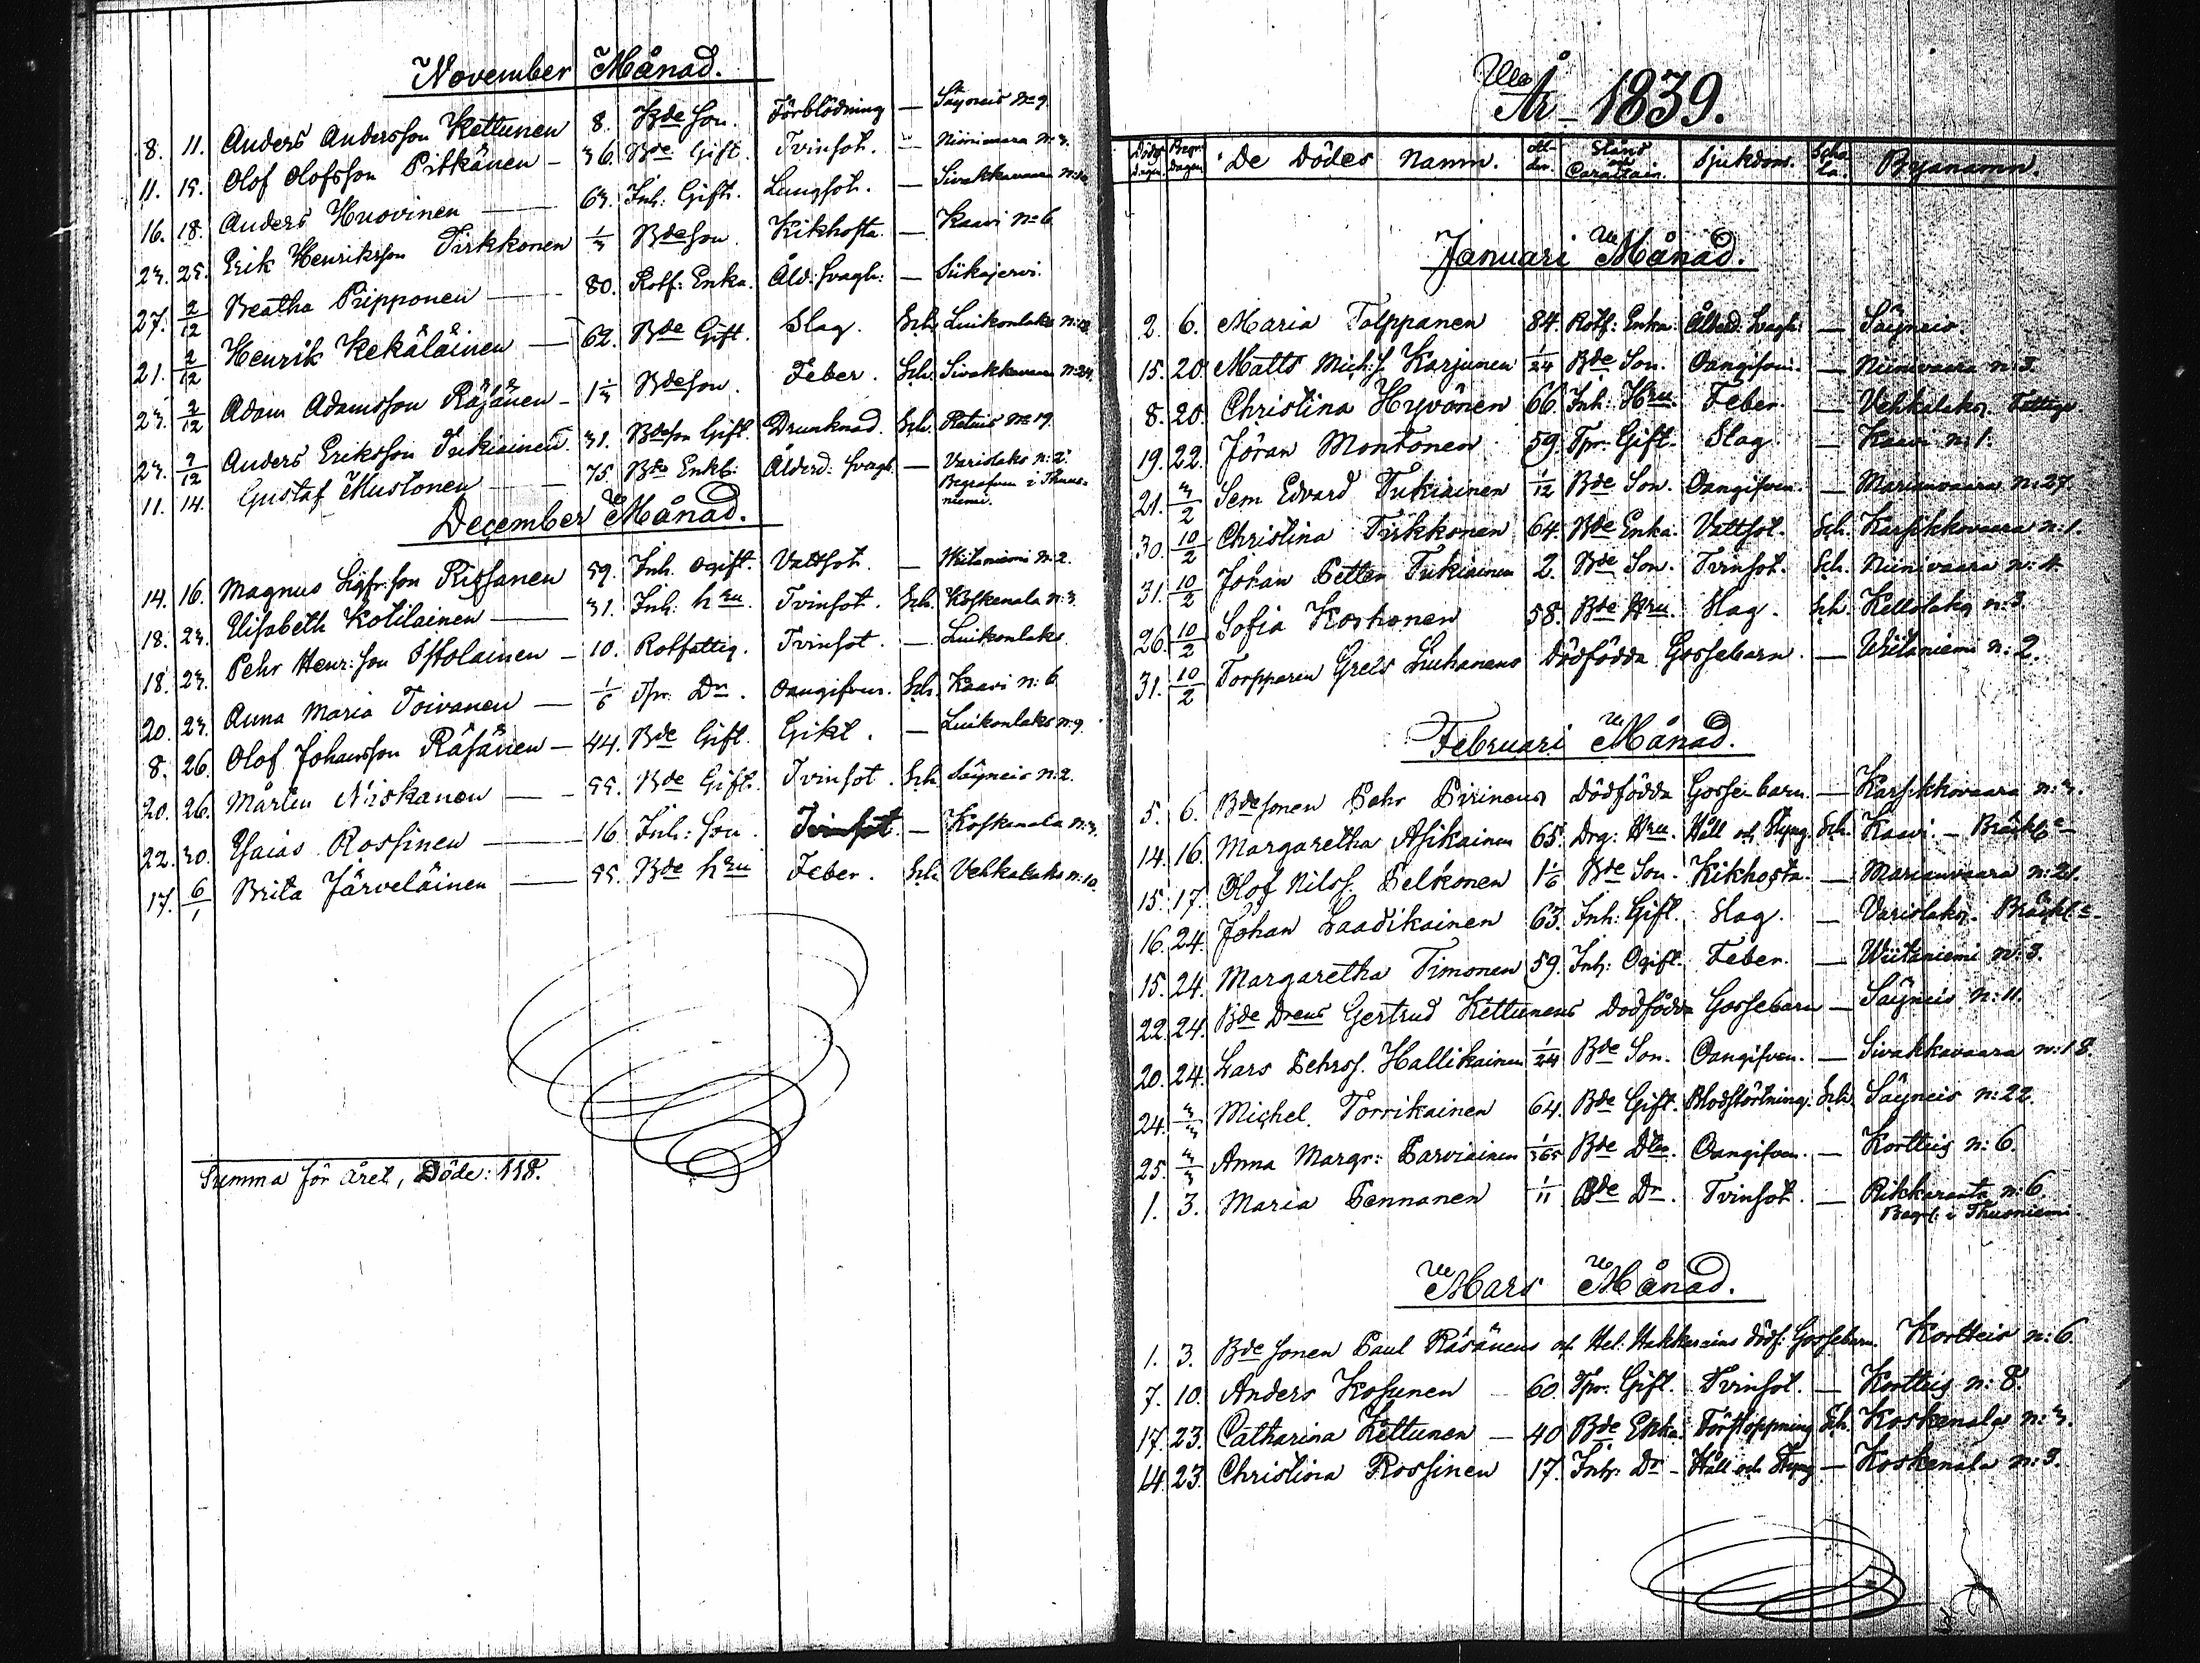 November Månad.
8. 11. Anders Andersson Kettunen 8. Bde Son. Förblödning — Säyneis No 9.
11. 15. Olof Olofsson Pitkänen — 36. Bde Gift. Tvinsot. — Niinivaara N:3.
16. 18. Anders Huovinen — 63. Inh: Gift. Lungsot. — Sivakkavaara
23. 25. Erik Henriksson Tirkkonen 1/3 Bde Son. Kikhosta — Kaavi No 6.
27. 2/12 Beatha Pripponen — 80. Rotf: Enka. Åld: svagh: — Siikajervi.
21. 2/12 Henrik Kekäläinen — 62. Bde Gift. Slag. Sch. Luikonlaks
23. 2/12 Adam Adamsson Räsänen — 1 1/3 Bde Son. Feber. Sch. Sivakkavaara N:24.
23. 2/12 Anders Eriksson Tukiainen. 31. Bdeson Gift. Drunknad. Sch. Retuis No 19.
11. 14. Gustaf Mustonen — 75. Bde Enkl: Ålderd: svagh. — Varislaks n:2.
Begrafven i Thuus-
niemi.
December Månad.
14. 16. Magnus Sigfr:son Rissanen 59. Inh. ogift. Vattsot. — Wiitaniemi N:2.
18. 23. Elisabeth Kotilainen — 31. Inh: hru. Tvinsot. Sch. Koskenala N:3
18. 23. Pehr Henr:son Issolainen — 10. Rotfattig. Tvinsot. — Luikonlaks
20. 23. Anna Maria Toivanen — 1/6 Tpr. Dr. Oangifven. Sch. Kaavi n:6
8. 26. Olof Johansson Räsänen — 44. Bde Gift. Gikt. — Luikonlaks N:9.
20. 26. Mårten Niskanen — 55. Bde Gift. Tvinsot. Sch. Säyneis n:2.
22. 30. Esaias Rossinen — 16. Inh: son. Tvinsot. — Koskenala N:3.
17. 6/1 Brita Järveläinen — 55. Bde hru Feber. Sch. Vehkalaks n:10.
Summa för året, Döde: 118.
År 1839.
Döds dagen. Begr. dagen De Dödes Namn. Ål-der. Stånd och Carattair. Sjukdom. Scha la. Byanamn.
Januari Månad.
2. 6. Maria Tolppanen 84. Rotf: Enka. Ålderd: svagh: — Säyneis.
15. 20. Matts Mich:s. Karjunen 1/24 Bde Son. Oangifven. — Niinivaara n:3.
8. 20. Christina Hyvönen 66. Inh: Hru. Feber. — Vehkalaks. Fattige
19. 22. Jöran Montonen 59. Tpr. Gift. Slag. — Kaavi n:1.
21. 3/2 Sem Edvard Tukiainen 1/12 Bde Son. Oangifven. — Marianvaara n:27.
30. 10/2 Christina Tirkkonen 64. Bde Enka. Vattsot. Sch. Karsikkovaara n:1.
31. 10/2 Johan Petter Tukiainen 2. Bde Son. Tvinsot. Sch. Niinivaara n:4.
26. 10/2 Sofia Koskonen 58. Bde Hru. Slag. Sch. Kellolaks n:3.
31. 10/2 Torparen Grels Liukanens Dödfödda Gossebarn. — Wiitaniemi n:2.
Februari Månad.
5. 6. Bdesonen Pehr Pirinens Dödfödda Gossebarn. — Karsikkovaara n:3.
14. 16. Margaretha Asikainen 65. Drg: Hru. Håll och Styng. Sch. Kaavi —
15. 17. Olof Nilss. Pelkonen 1 1/6 Bde Son. Kikhosta. — Marianvaara n:21.
16. 24. Johan Laadikainen 63. Inh: Gift. Slag. — Varislaks.
15. 24. Margaretha Timonen 59. Inh: Ogift. Feber. — Wiitaniemi n:3.
22. 24. Bde Drens Gertrud Kettunens Dödfödda Gossebarn — Säyneis n:11.
20. 24. Lars Pehrss. Hallikainen 1/24 Bde Son. Oangifven. — Sivakkavaara n:18.
24. 3/3 Michel Torrikainen 64. Bde Gift. Blodstörtning. Sch. Säyneis n:22.
25. 3/3 Anna Margr: Parviainen 1/365 Bde Dter. Oangifven. — Kortteis n:6.
1. 3. Maria Pennanen 1/11 Bde Dr. Tvinsot. — Rikkaranta n:6.
Begr: i Thusniemi.
Mars Månad.
1. 3. Bde sonen Paul Räsänens och Hel: Hakkarains dödf: Gossebarn. Kortteis n:6.
7. 10. Anders Kosunen — 60. Tpr. Gift. Tvinsot. — Kortteis n:8.
17. 23. Catharina Kettunen — 40 Bde Enka. Förstoppning Sch. Koskenala n:3.
14. 23. Christina Rossinen 17. Inh: Dr — Håll och Styng — Koskenala n:3.